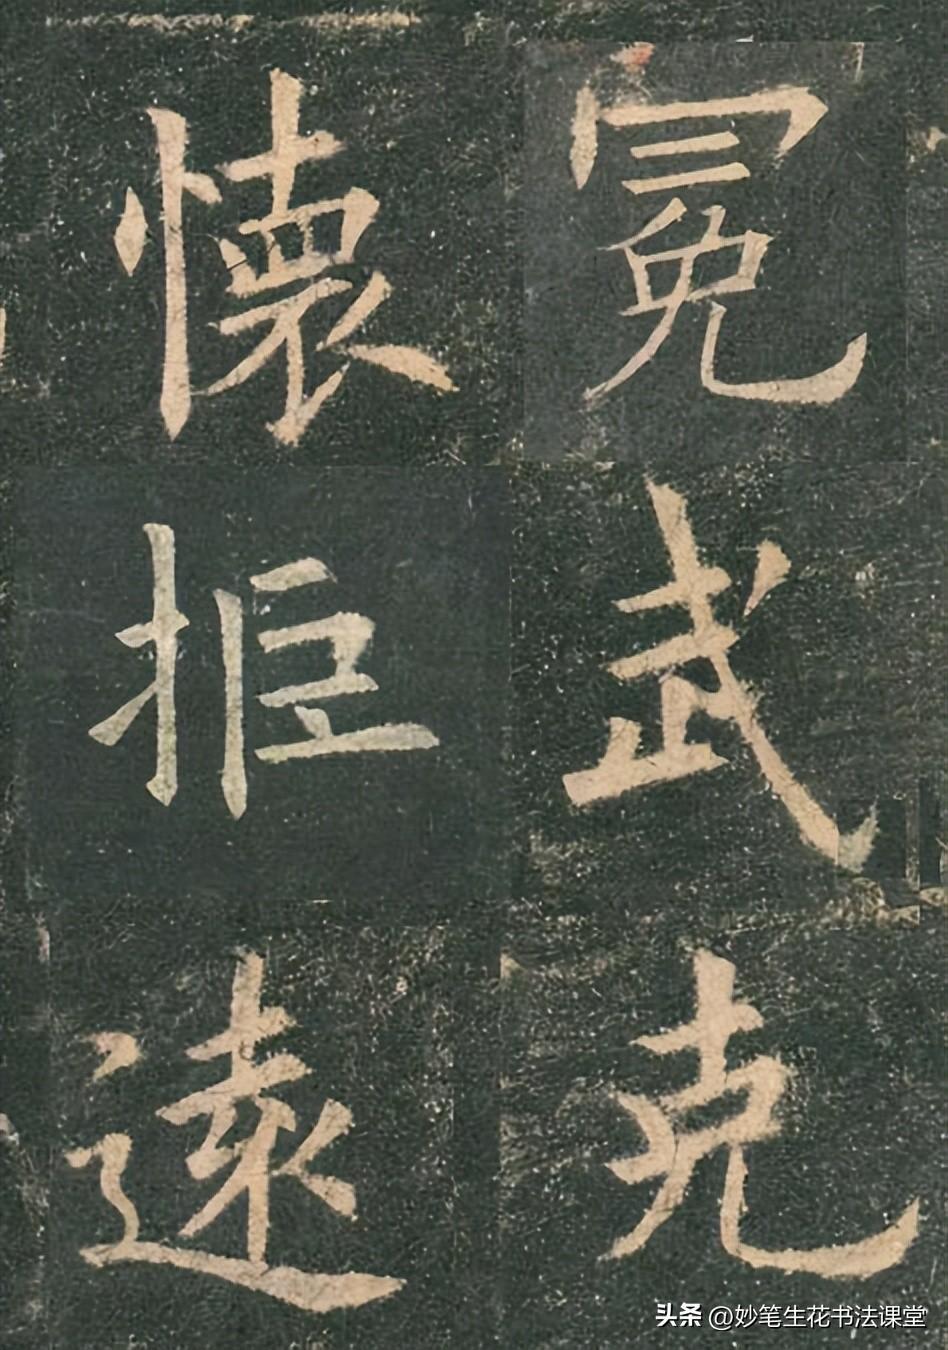 冕武克
懷拒遠
头条 @妙笔生花书法课堂